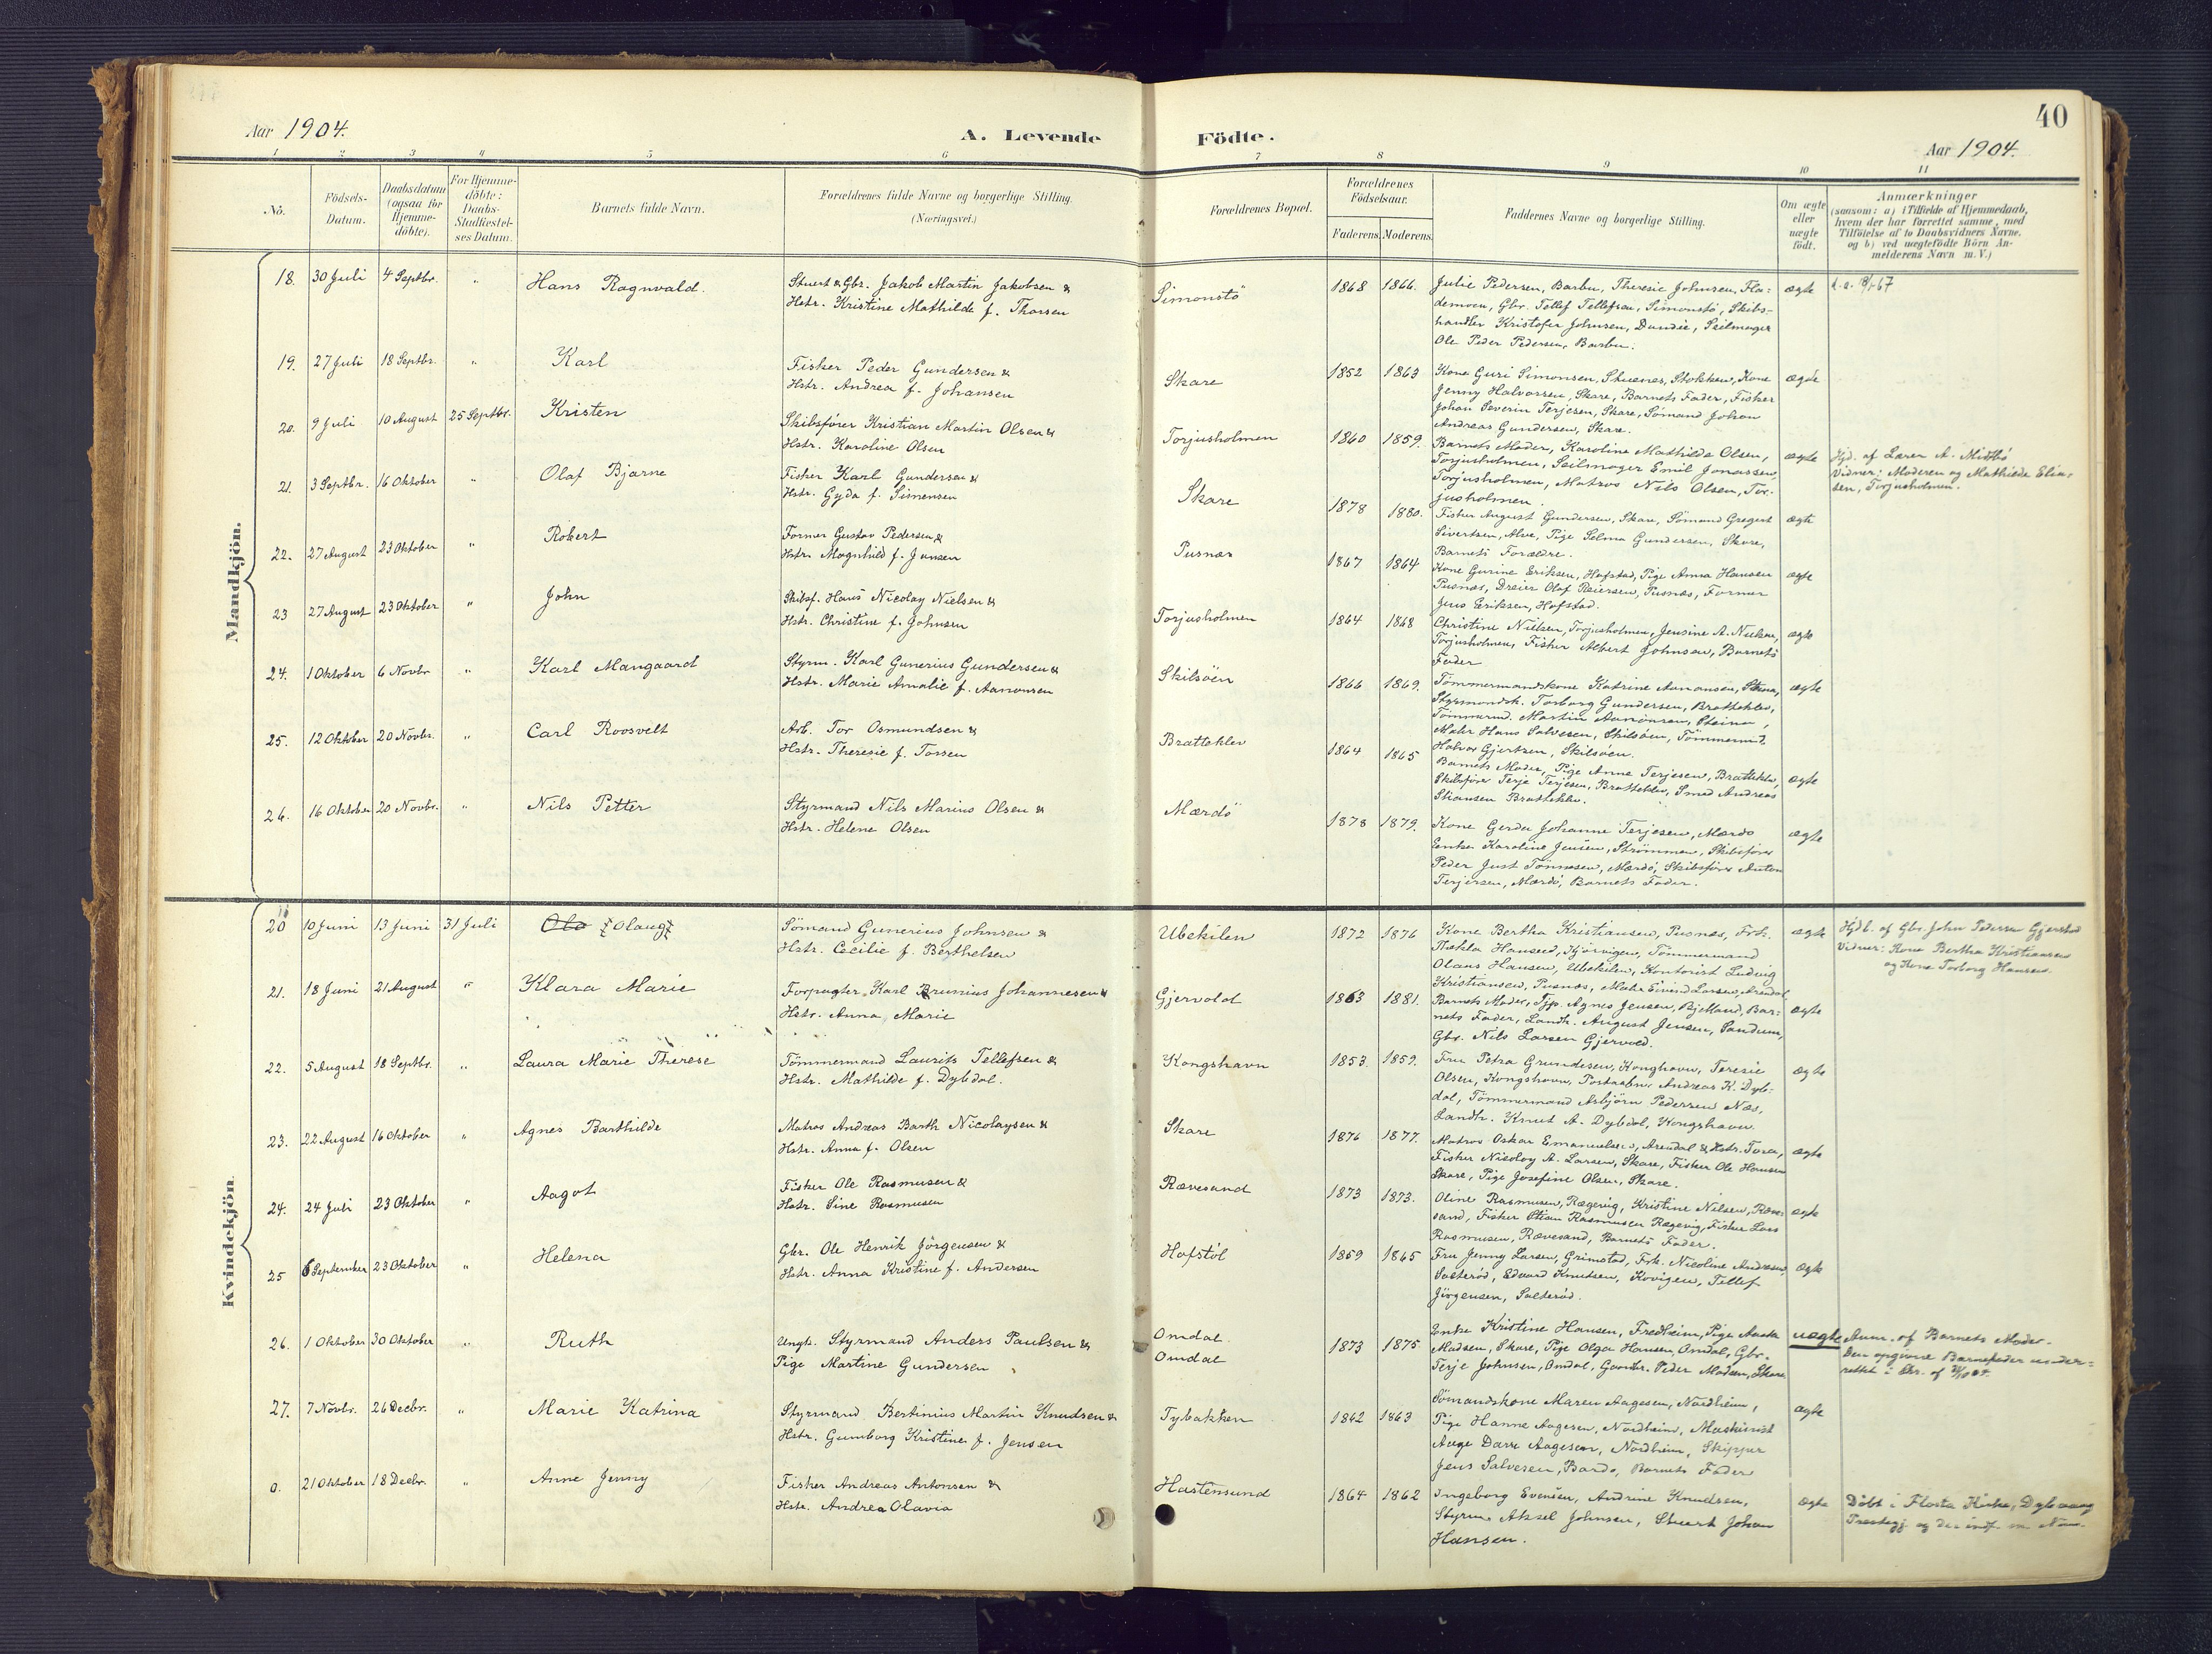 40
Aar 1904.
A. Levende
Födte.
Aar 1904.
1 2 3 4 5 6 7 8 9 10 11
No.
Födsels-
Datum.
Daabsdatum
(ogsaa for
Hjemme-
döbte).
For Hjemme-
döbte:
Daabs-
Stadfæstel-
ses Datum.
Barnets fulde Navn.
Forældrenes fulde Navne og borgerlige Stilling.
(Næringsvei.)
Forældrenes Bopæl.
Forældrenes
Födselsaar.
Faderens.
Moderens.
Faddernes Navne og borgerlige Stilling.
Om ægte
eller
uægte
födt.
Anmærkninger
(saasom: a) i Tilfælde af Hjemmedaab,
hvem der har forrettet samme, med
Tilföielse af to Daabsvidners Navne,
og b) ved uægtefödte Börn An-
melderens Navn m. V.)
Mandkjön.
18. 30 Juli 4 Septbr. " Hans Ragnvald.
Stuert & Gbr. Jakob Martin Jakobsen &
Hstr. Kristine Mathilde f. Thorsen
Simonstö 1868 1866.
Julie Pedersen, Barbu, Theresie Johnsen, Fla-
demoen, Gbr. Tellef Tellefsen, Simonstö, Skibs-
handler Kristofer Johnsen, Dundie, Seilmager
Ole Peder Pedersen, Barbu.
ægte
19. 27 Juli 18 Septbr. " Karl
Fisker Peder Gundersen &
Hstr. Andrea f. Johansen
Skare 1852 1863
Kone Guri Simonsen, Stuenes, Stokken, Kone
Jenny Halvorsen, Skare, Barnets Fader, Fisker
Johan Severin Terjesen, Skare, Sömand Johan
Andreas Gundersen, Skare.
ægte
20. 9 Juli 10 August 25 Septbr. Kristen
Skibsförer Kristian Martin Olsen &
Hstr. Karoline Olsen
Torjusholmen 1860 1859.
Barnets Moder, Karoline Mathilde Olsen,
Torjusholmen, Seilmager Emil Jonassen,
Torjusholmen, Matros Nils Olsen, Tor-
jusholmen.
ægte
Hjd. af Lærer A. Midtbö
Vidner: Moderen og Mathilde Elia-
sen, Torjusholmen.
21. 3 Septbr. 16 Oktober " Olaf Bjarne
Fisker Karl Gundersen &
Hstr. Gyda f. Simensen
Skare 1878 1880.
Fisker August Gundersen, Skare, Sömand Gregert
Sivertsen, Alve, Pige Selma Gundersen, Skare,
Barnets Forældre.
ægte
22. 27 August 23 Oktober " Robert
Former Gustav Pedersen &
Hstr. Magnhild f. Jensen
Pusnes 1867 1864
Kone Gurine Eriksen, Hofstad, Pige Anna Hansen
Pusnes, Dreier Olaf Reiersen, Pusnæs, Former
Jens Eriksen, Hofstad.
ægte
23 27 August 23 Oktober " John
Skibsf. Hans Nicolay Nielsen &
Hstr. Christine f. Johnsen
Torjusholmen 1864 1868
Christine Nielsen, Torjusholmen, Jensine A. Nielsen,
Torjusholmen, Fisker Albert Johnsen, Barnets
Fader
ægte
24. 1 Oktober 6 Novbr " Karl Mangaard
Styrm. Karl Gunerius Gundersen &
Hstr. Marie Amalie f. Aamonsen
Skilsöen 1866 1869.
Tömmermandskone Katrine Aamonsen, Stena,
Styrmandsk. Torborg Gundersen, Brattekleb,
Tömmermd. Martin Aamonsen, Steina,
Matr Hans Salvesen, Skilsöen, Tömmermd.
Halvor Gjertsen, Skilsöen.
ægte
25. 12 Oktober 20 Novbr. " Carl Roosvelt
Arb. Tor Osmundsen &
Hstr. Theresie f. Tossen
Bratteklev 1864 1865
Barnets Moder, Pige Anne Terjesen, Bratteklev,
Skibsförer Terje Terjesen, Bratteklev, Smed Andreas
Stiansen Bratteklev.
ægte
26. 16 Oktober 20 Novbr. " Nils Petter
Styrmand Nils Marius Olsen &
Hstr. Helene Olsen
Mærdö 1878 1879.
Kone Gerda Johanne Terjesen, Mærdö
Enke Karoline Jensen, Strömmen, Skibsförer
Peder Just Tönnesen, Mærdö, Skibsförer Anton
Terjesen, Mærdö, Barnets Fader.
ægte
Kvindekjön.
20 10 Juni 13 Juni 31 Juli Ola Olaug
Sömand Gunerius Johnsen &
Hstr. Cecilie f. Berthelsen
Ubekilen 1872 1876
Kone Bertha Kristiansen, Pusnæs, Frk.
Thekla Hansen, Kjörvigen, Tömmermand
Olans Hansen, Ubekilen, Kontorist Ludvig
Kristiansen, Pusnæs, Matr Eivind Larsen, Arendal
ægte
Hjdb. af Gbr. John Pedersen Gjerstad
Vidner: Kone Bertha Kristiansen
og Kone Torborg Hansen.
21. 18 Juni 21 August " Klara Marie
Forpagter Karl Brunius Johannesen &
Hstr. Anna Marie
Gjervold 1863 1881.
Barnets Moder, Tjp. Agnes Jensen, Bjelland, Bar-
nets Fader, Landh. August Jensen, Sandum,
Gbr. Nils Larsen Gjervold.
ægte
22. 5 August 18 Septbr. " Laura Marie Therese
Tömmermand Laurits Tellefsen &
Hstr. Mathilde f. Dybdal.
Kongshavn 1853. 1859.
Fru Petra Grundesen, Konghavn, Teresie
Olsen, Kongshavn, Postaabn Andreas K. Dyb-
dal, Tömmermand Asbjörn Pedersen Næs,
Landh. Knut A. Dybdal, Kongshavn
ægte
23. 22 August 16 Oktober " Agnes Barthilde
Matros Andreas Barth Nicolaysen &
Hstr. Anna f. Olsen
Skare 1876 1877.
Matros Oskar Emanuelsen, Arendal & Hstr. Tora,
Fisker Nicolay A. Larsen, Skare, Fisker Ole Hansen
Skare, Pige Josefine Olsen, Skare.
ægte
24. 24 Juli 23 Oktober " Aagot
Fisker Ole Rasmusen &
Hstr. Sine Rasmusen
Rævesand 1873 1873.
Oline Rasmusen, Rægevig, Kristine Nilsen, Ræve-
sand, Fisker Stian Rasmusen Rægevig, Fisker Lars
Rasmusen, Rævesand, Barnets Fader.
ægte
25 6 September 23 Oktober " Helena
Gbr. Ole Henrik Jörgensen &
Hstr. Anna Kristine f. Andersen
Hofstöl 1859 1865
Fru Jenny Larsen, Grimstad, Frk. Nicoline Andresen,
Salteröd, Edvard Knutsen, Kovigen, Tellef
Jörgensen, Salteröd.
ægte
26. 1 Oktober 30 Oktober " Ruth
Ungk. Styrmand Anders Paulsen &
Pige Martine Gundersen
Omdal
Omdal
1873 1875
Enke Kristine Hansen, Fredheim, Pige Aasta
Madsen, Skare, Pige Olga Hansen, Omdal, Gbr.
Terje Johnsen, Omdal, Peder Madsen, Skare
uægte
Anm. af Barnets Moder.
Den opgivne Barnefader under-
rettet i Skr. af
27. 7 Novbr. 26 Decbr. " Marie Katrina
Styrmand Bertinius Martin Knudsen &
Hstr. Gumborg Kristine f. Jensen
Tybakken 1862 1863
Sömandskone Maren Aagesen, Nordheim,
Pige Hanne Aagesen, Nordheim, Maskinist
Aage Darre Aagesen, Nordheim, Skipper
Jens Salvesen, Bardö, Barnets Fader
ægte
0. 21 Oktober 18 Decbr. " Anne Jenny
Fisker Andreas Antonsen &
Hstr. Andrea Olavia
Hastensund 1864 1862
Ingeborg Evensen, Andrine Knudsen,
Styrm. Aksel Johnsen, Stuert Johan
Hansen.
ægte
Döbt i Flosta Kirke, Dybvaag
Præstegj. og der indf. m. Nom.